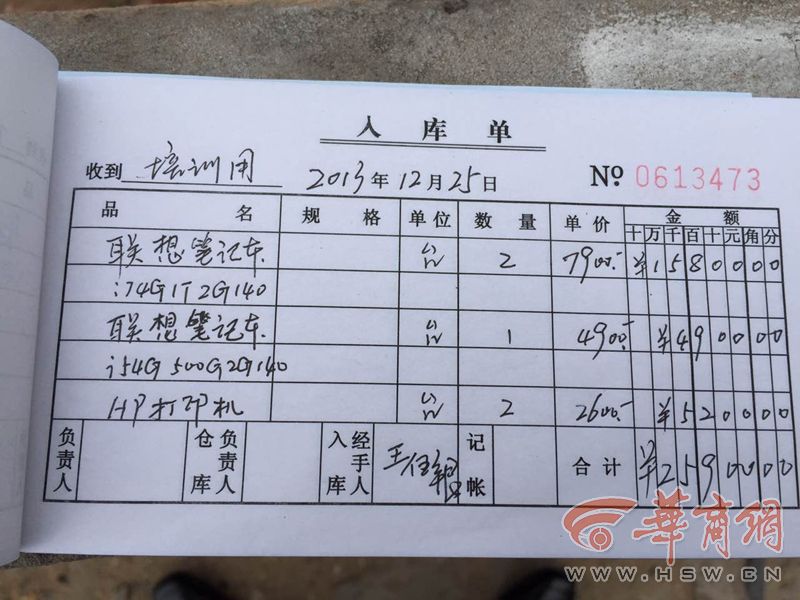 入库单
收到 培训用 2013年12月25日 Nº 0613473
品名 规格 单位 数量 单价 金额
十万千百十元角分
联想笔记本 台 2 7900.- ¥1580000
i74G1T2G140
联想笔记本 台 1 4900.- ¥490000
i54G500G2G140
HP打印机 台 2 2600.- ¥520000
负责人 仓库负责人 入库经手人 王任 记帐 合计 ¥2590000
華商網
WWW.HSW.CN